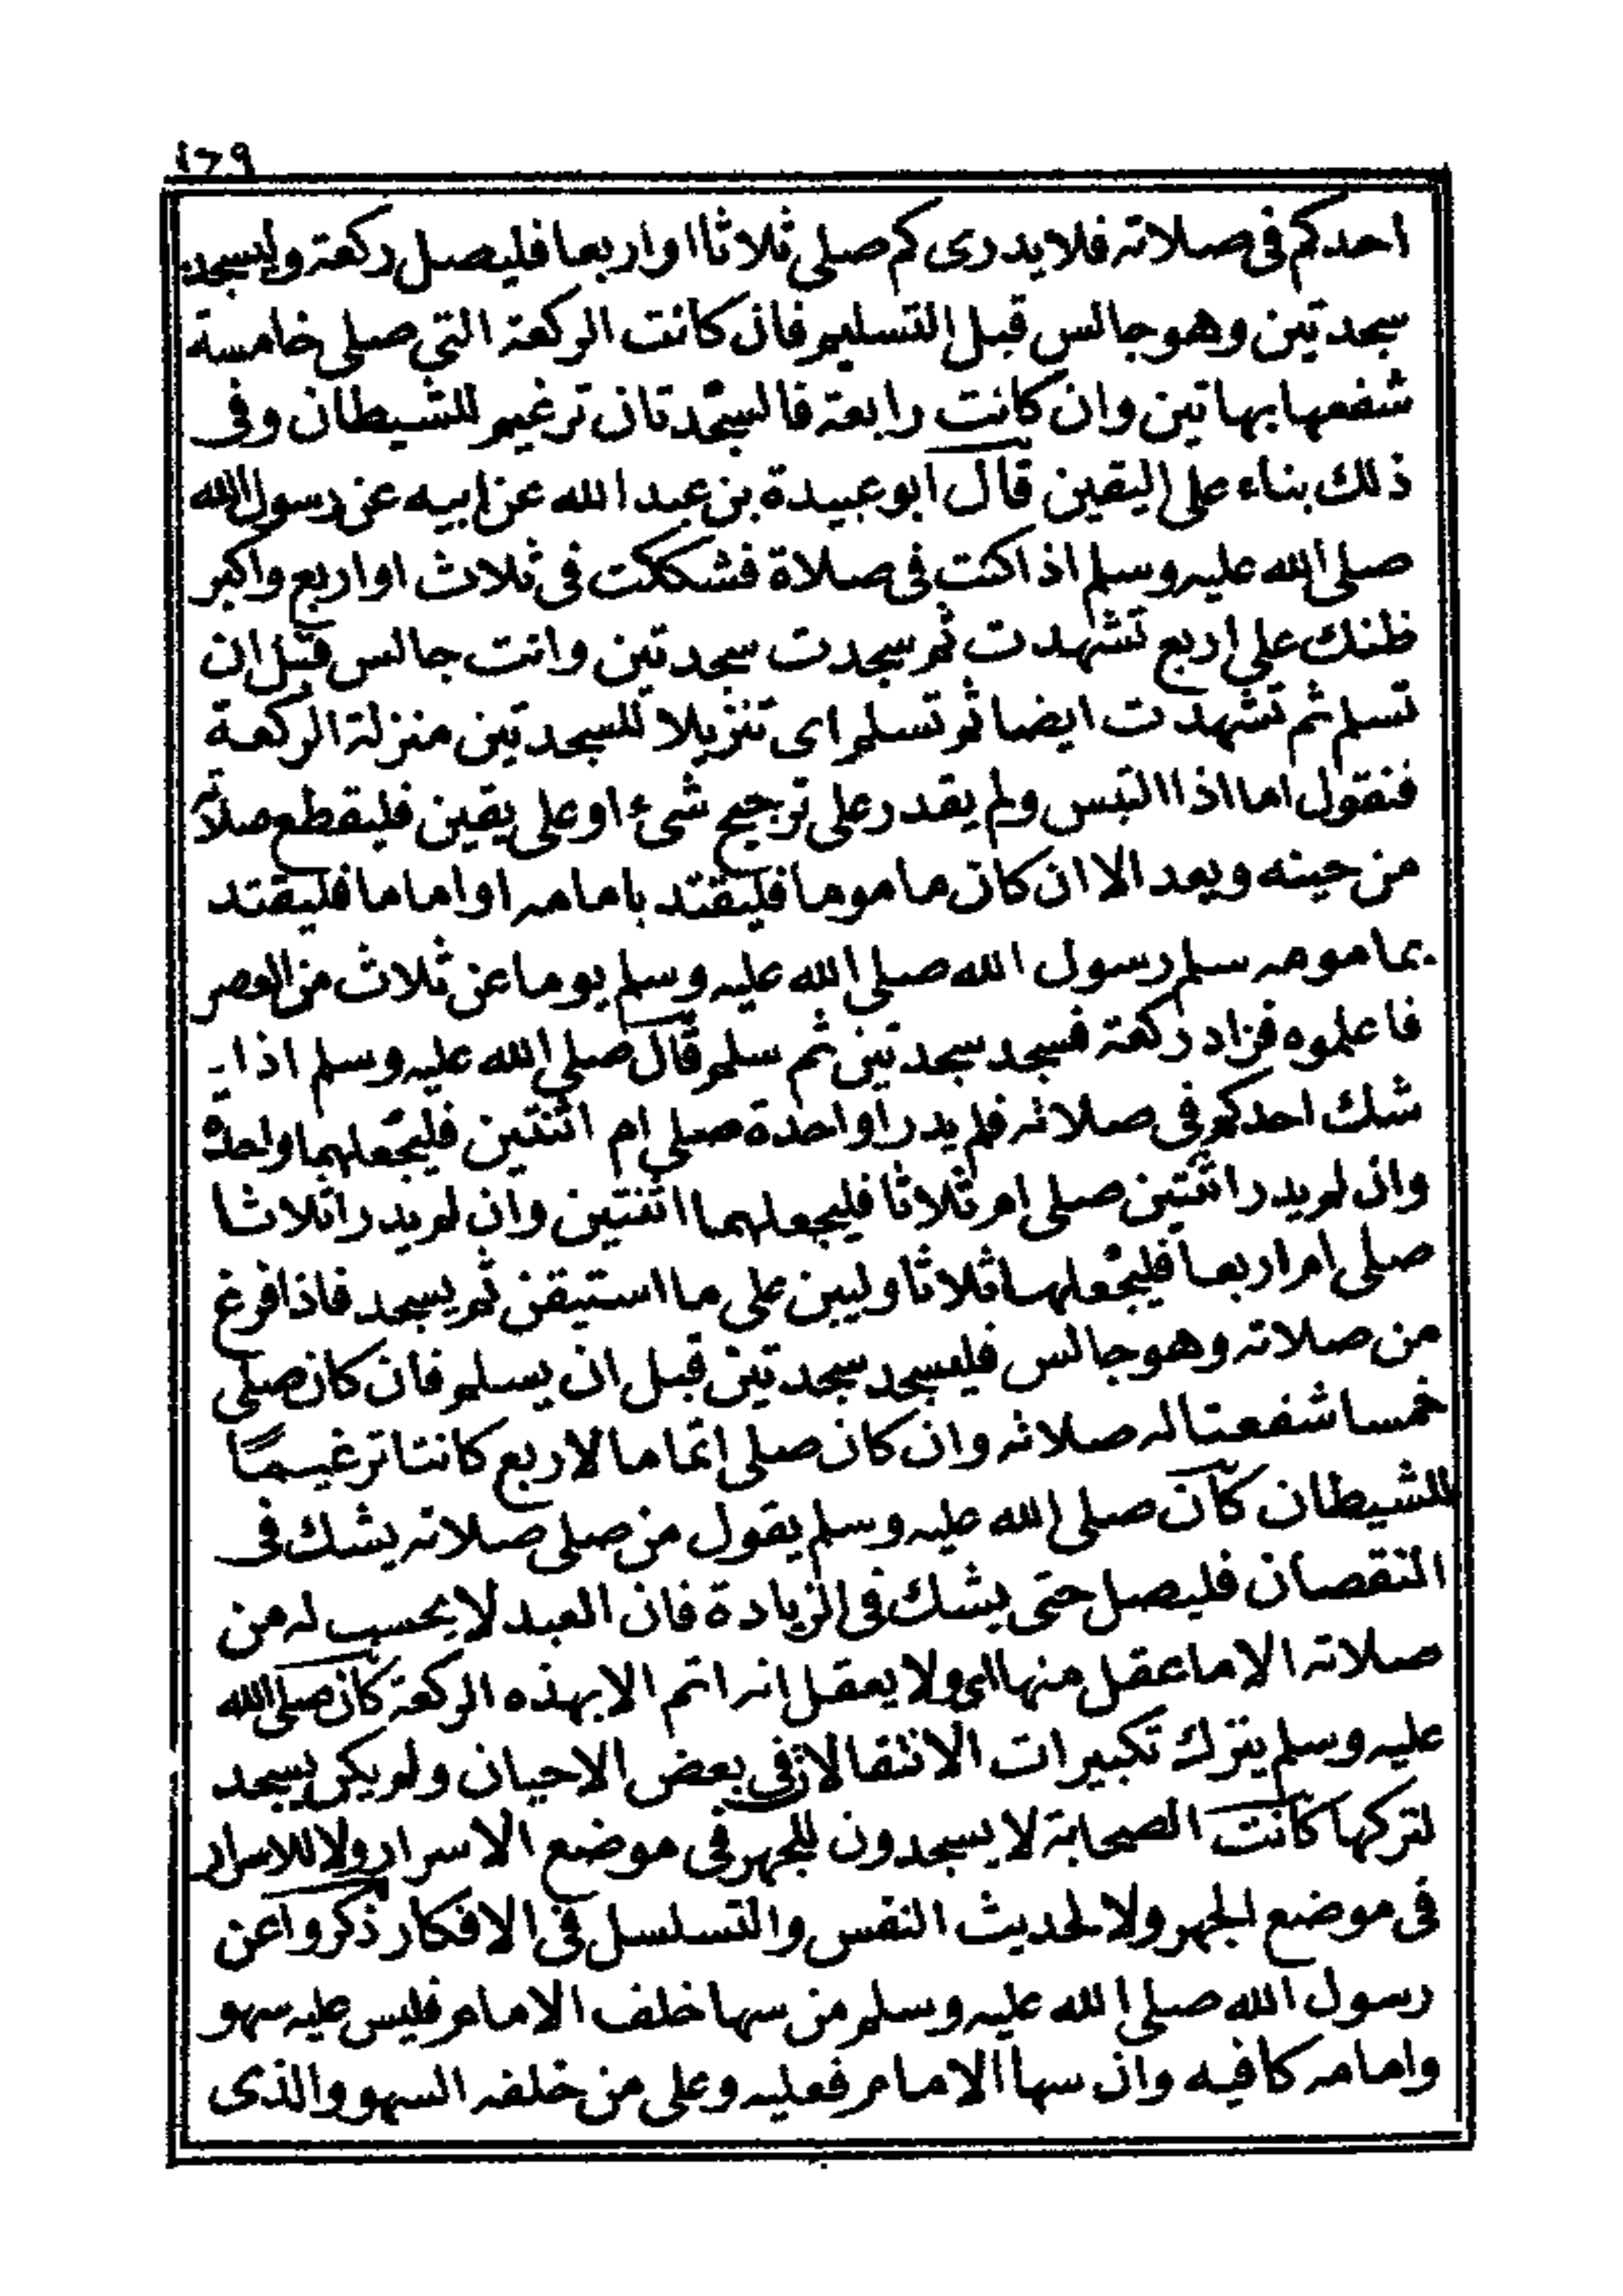 ١٦٩
احدكم فى صلاته فلا يدرى كم صلى ثلاثا او اربعا فليصل ركعة وليسجد
سجدتين وهو جالس قبل التسليم فان كانت الركعة التي صلى خامسة
شفعها بهاتين وان كانت رابعة فالسجدتان ترغيم للشيطان وفى
ذلك بناء على اليقين قال ابو عبيدة بن عبد الله عن ابيه عن رسول الله
صلى الله عليه وسلم اذا كنت فى صلاة فشككت فى ثلاث او اربع واكبر
ظنك على اربع تشهدت ثم سجدت سجدتين وانت جالس قبل ان
تسلم ثم تشهدت ايضا ثم تسلم اى تنزيلا للسجدتين منزلة الركعة
فنقول اما اذا التبس ولم يقدر على ترجيح شىء او على يقين فليقطع صلاته
من حينه ويعد الا ان كان ماموما فليقتد بامامه او اماما فليقتد
بماموه سلم رسول الله صلى الله عليه وسلم يوما عن ثلاث من العصر
فاعلموه فزاد ركعة فسجد سجدتين ثم سلم قال صلى الله عليه وسلم اذا
شك احدكم فى صلاته فلم يدر اواحدة صلى ام اثنتين فليجعلهما واحدة
وان لم يدر اثنتين صلى ام ثلاثا فليجعلهما اثنتين وان لم يدر اثلاثا
صلى ام اربعا فليجعلها ثلاثا وليبن على ما استيقن ثم يسجد فاذا فرغ
من صلاته وهو جالس فليسجد سجدتين قبل ان يسلم فان كان صلى
خمسا شفعتا له صلاته وان كان صلى اتماما لاربع كانتا ترغيمًا
للشيطان كان صلى الله عليه وسلم يقول من صلى صلاته يشك فى
النقصان فليصل حتى يشك فى الزيادة فان العبد لا يحسب له من
صلاته الا ما عقل منها اى ولا يعقل انه اتم الا بهذه الركعة كان صلى الله
عليه وسلم يترك تكبيرات الانتقالات فى بعض الاحيان ولم يكن يسجد
لتركها كانت الصحابة لا يسجدون للجهر فى موضع الاسرار ولا للاسرار
فى موضع الجهر ولا لحديث النفس والتسلسل فى الافكار ذكروا عن
رسول الله صلى الله عليه وسلم من سها خلف الامام فليس عليه سهو
وامامه كافيه وان سها الامام فعليه وعلى من خلفه السهو والذى